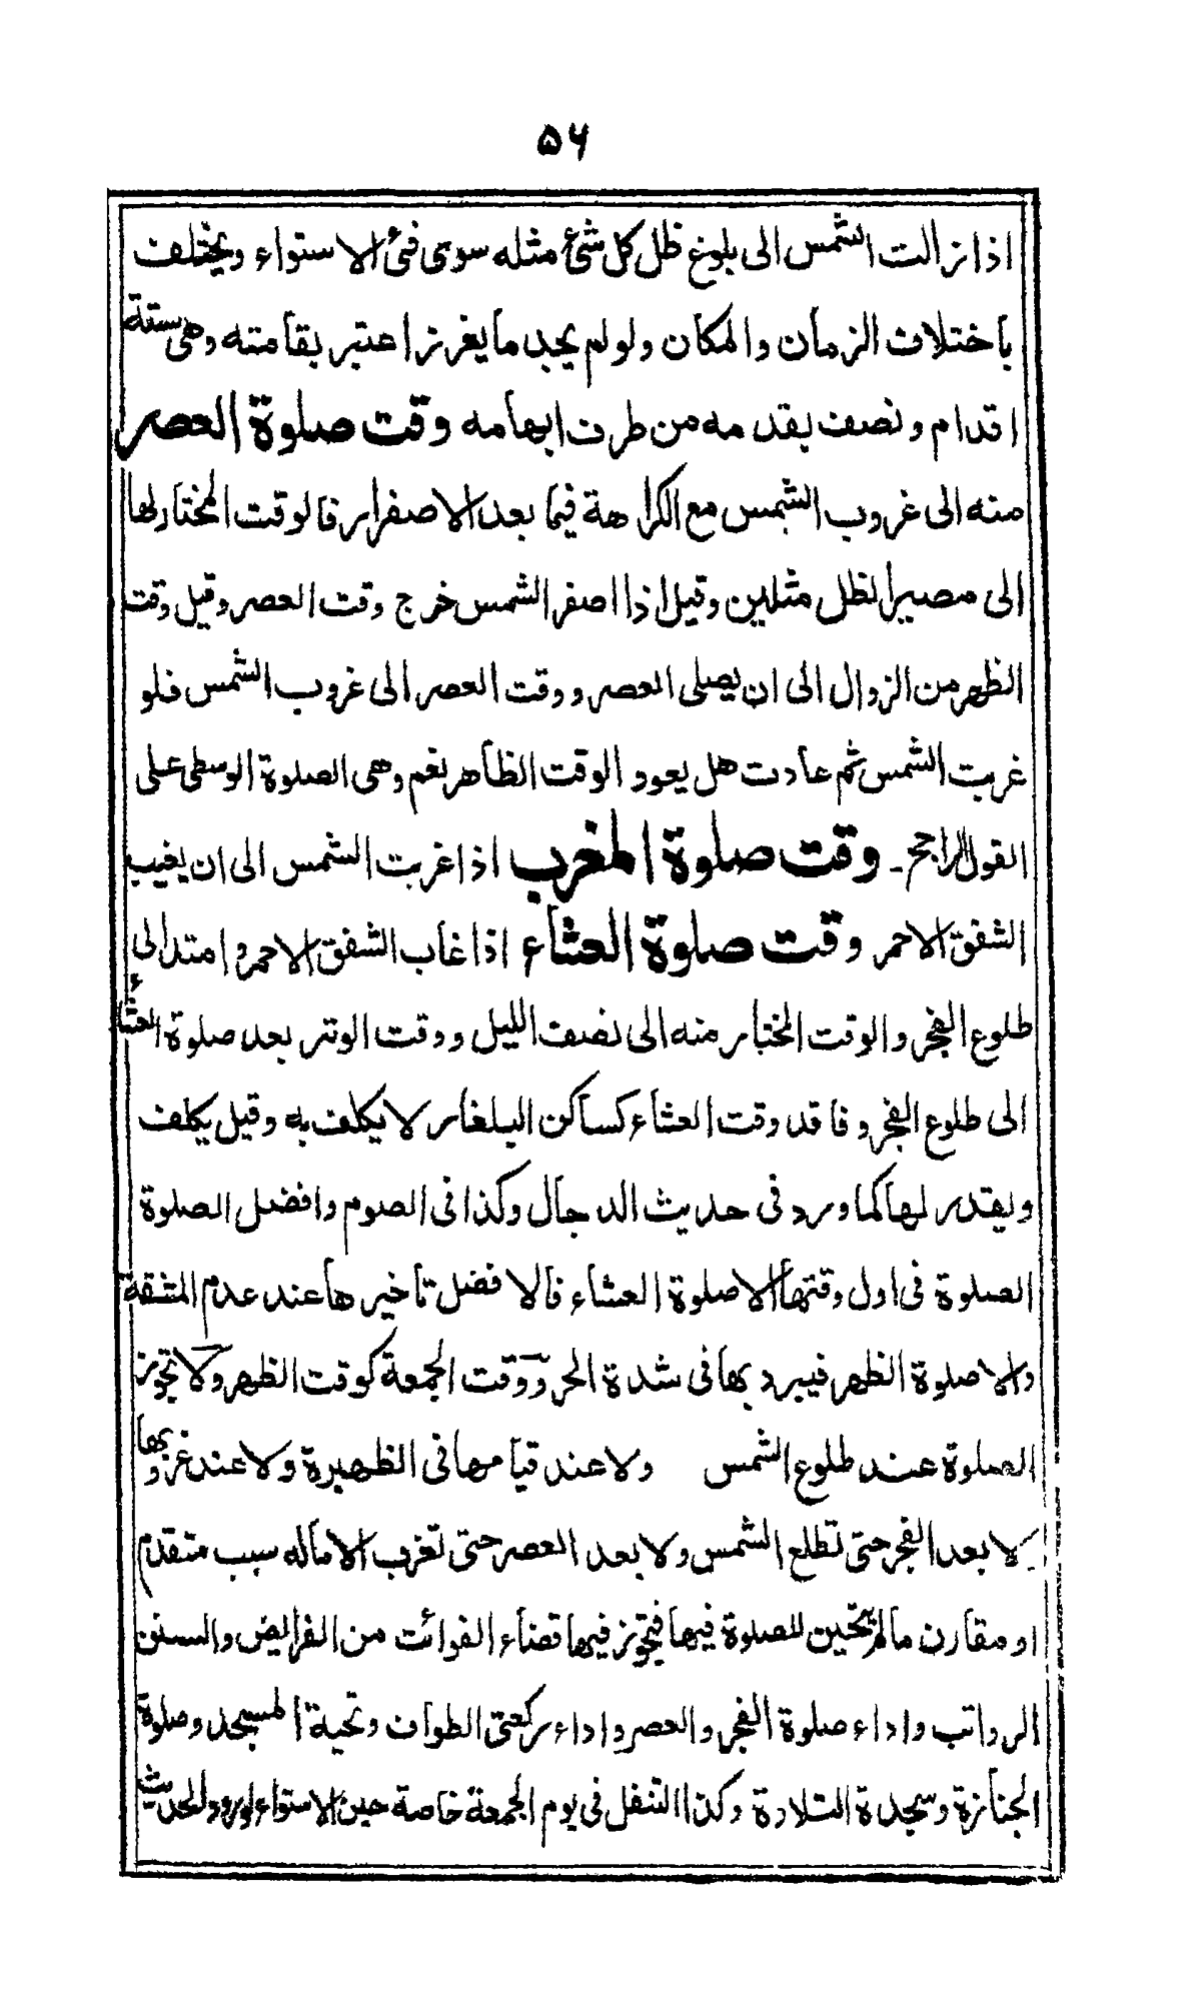 ۵۶
اذا زالت الشمس الى بلوغ ظل كل شئ مثله سوى فئ الاستواء ويختلف
باختلاف الزمان والمكان ولو لم يجد ما يغرز اعتبر بقامته وهى ستة
اقدام ونصف بقدمه من طرف ابهامه وقت صلوة العصر
منه الى غروب الشمس مع الكراهة فيما بعد الاصفرار فالوقت المختار لها
الى مصير الظل مثلين وقيل اذا اصفر الشمس خرج وقت العصر وقيل وقت
الظهر من الزوال الى ان يصلى العصر ووقت العصر الى غروب الشمس فلو
غربت الشمس ثم عادت هل يعود الوقت الظاهر نعم وهى الصلوة الوسطى على
القول الراجح ـ وقت صلوة المغرب اذا غربت الشمس الى ان يغيب
الشفق الاحمر وقت صلوة العشاء اذا غاب الشفق الاحمر وامتد الى
طلوع الفجر والوقت المختار منه الى نصف الليل ووقت الوتر بعد صلوة العشاء
الى طلوع الفجر وفاقد وقت العشاء كساكن البلغار لا يكلف به وقيل يكلف
ويقدر لها كما ورد فى حديث الدجال وكذا فى الصوم وافضل الصلوة
الصلوة فى اول وقتها الا صلوة العشاء فالافضل تاخيرها عند عدم المشقة
والا صلوة الظهر فيبرد بها فى شدة الحر ووقت الجمعة كوقت الظهر ولا تجوز
الصلوة عند طلوع الشمس ولا عند قيامها فى الظهيرة ولا عند غروبها
لا بعد الفجر حتى تطلع الشمس ولا بعد العصر حتى تغرب الا ماله سبب متقدم
او مقارن مالم يتحين للصلوة فيها فيجوز فيها قضاء الفوائت من الفرائض والسنن
الرواتب واداء صلوة الفجر والعصر واداء ركعتى الطواف وتحية المسجد وصلوة
الجنازة وسجدة التلاوة وكذا التنفل فى يوم الجمعة خاصة حين الاستواء لورود الحديث